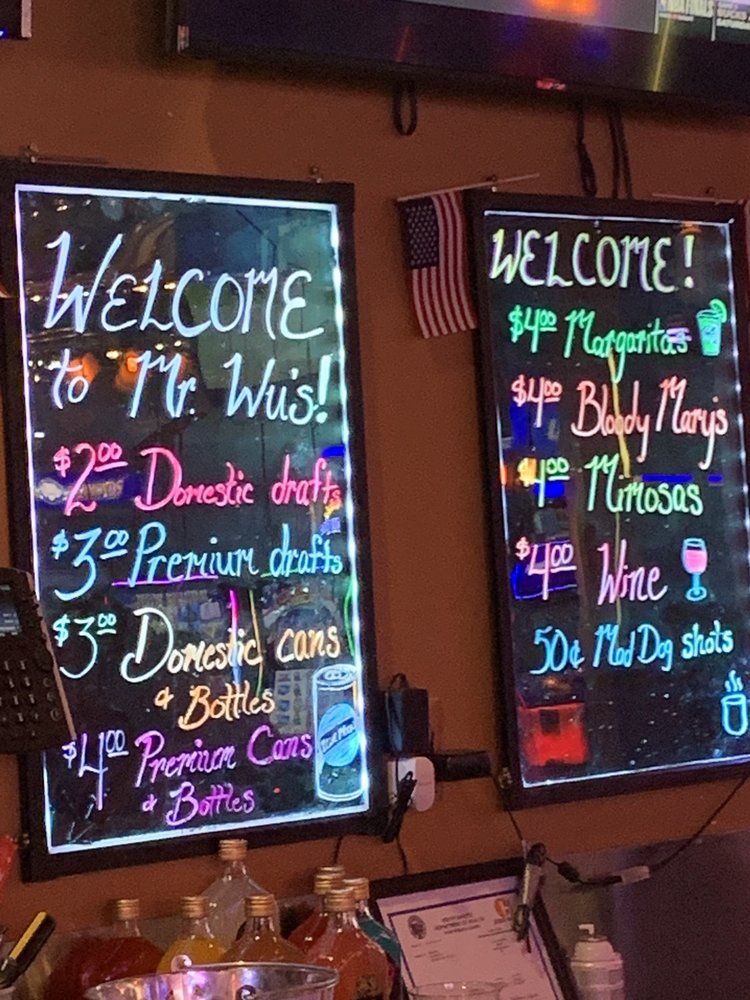 WELCOME
to Mr. Wu's!
$2.00 Domestic drafts
$3.00 Premium drafts
$3.00 Domestic cans
& Bottles
$4.00 Premium Cans
& Bottles
WELCOME!
$4.00 Margaritas
$4.00 Bloody Mary's
$4.00 Mimosas
$4.00 Wine
50¢ Mad Dog shots
NBA FINALS